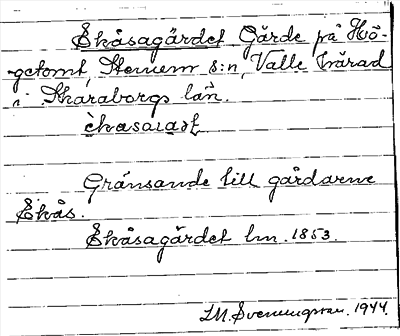 Ekåsagärdet Gärde på Hö-
getomt, Stenum s:n, Valle härad
i Skaraborgs län.
Gränsande till gårdarne
Ekås.
Ekåsagärdet lm. 1853.
I.M. Svenungsson. 1944.